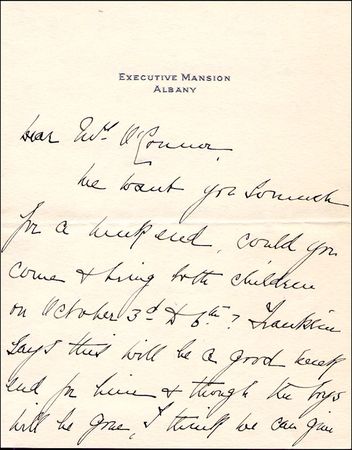 EXECUTIVE MANSION
ALBANY
Dear Mrs O'Connor,
We want you so much
for a week end, could you
come & bring both children
on October 3d to 6th? Franklin
says this will be a good week
end for him & though the boys
will be gone, I think we can give